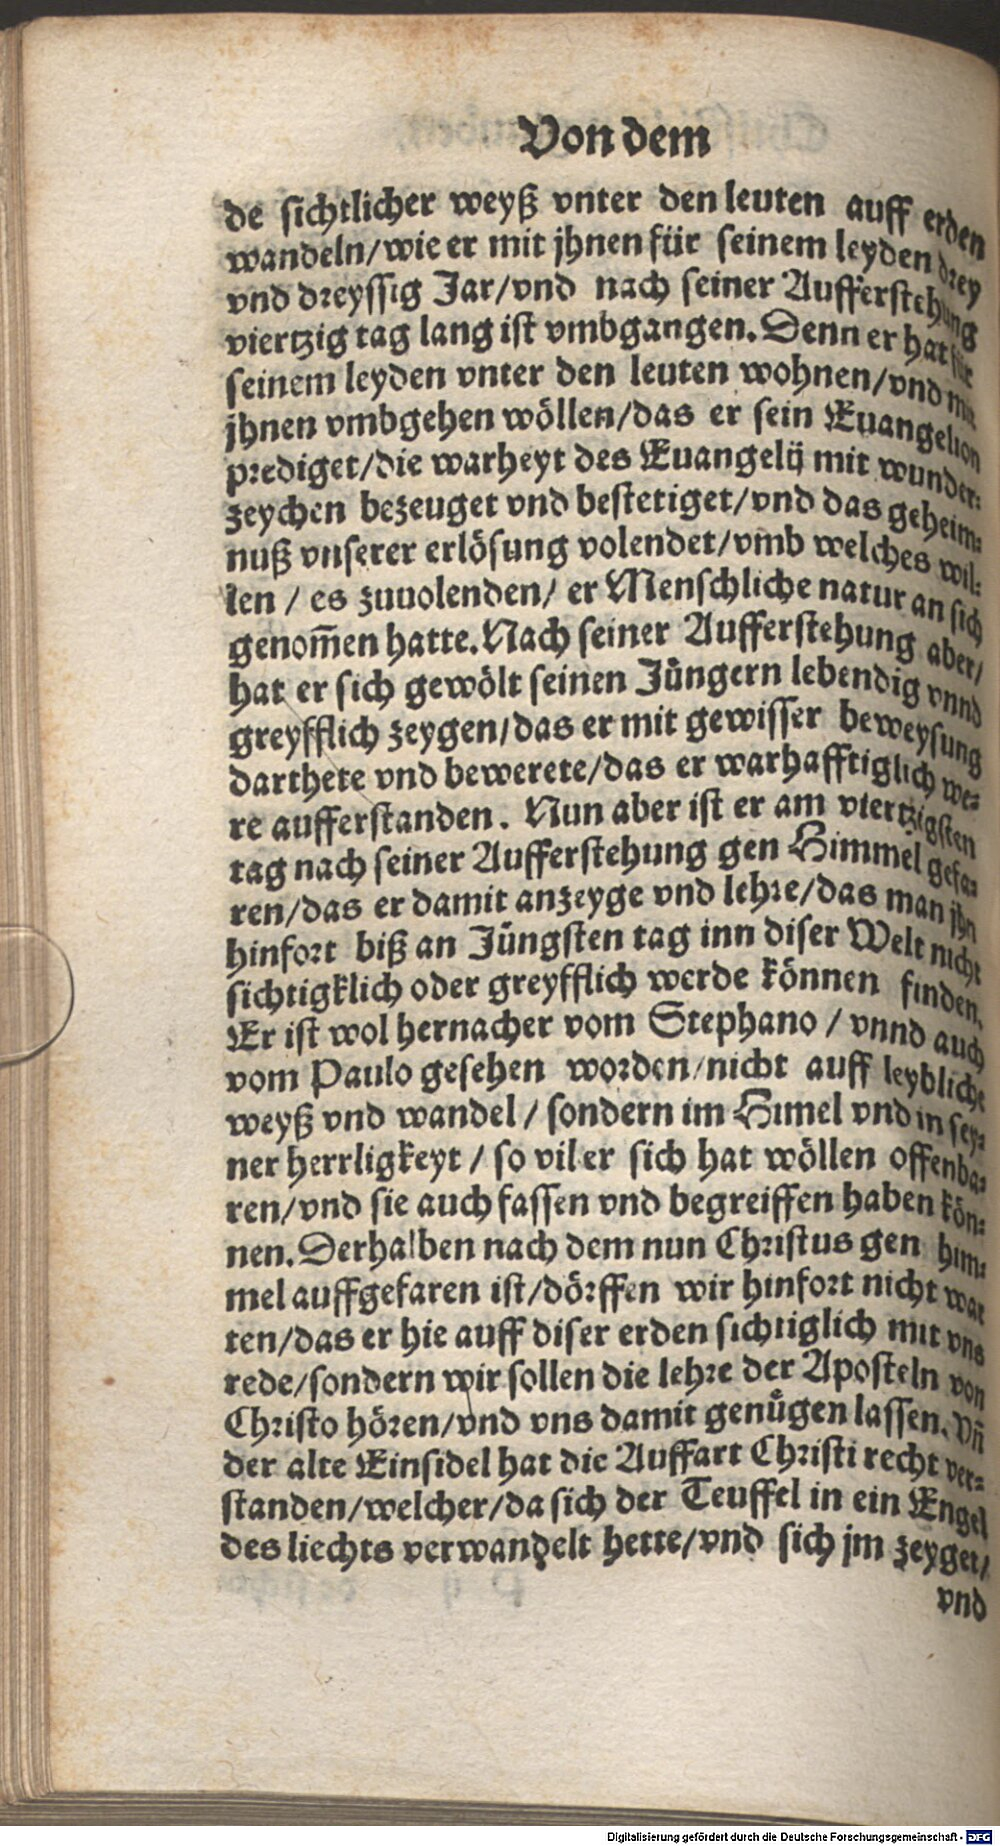 Von dem
de sichtlicher weyß vnter den leuten auff erden
wandeln/wie er mit jhnen für seinem leyden drey
vnd dreyssig Jar/vnd nach seiner Aufferstehung
viertzig tag lang ist vmbgangen. Denn er hat für
seinem leyden vnter den leuten wohnen/vnd mit
jhnen vmbgehen wöllen/das er sein Euangelion
prediget/die warheyt des Euangelij mit wunder⸗
zeychen bezeuget vnd bestetiget/vnd das geheim⸗
nuß vnserer erlösung volendet/vmb welches wil⸗
len / es zuuolenden/ er Menschliche natur an sich
genom̃en hatte. Nach seiner Aufferstehung aber/
hat er sich gewölt seinen Jüngern lebendig vnnd
greyfflich zeygen/das er mit gewisser beweysung
darthete vnd bewerete/das er warhafftiglich we⸗
re aufferstanden. Nun aber ist er am viertzigsten
tag nach seiner Aufferstehung gen Himmel gefa⸗
ren/das er damit anzeyge vnd lehre/das man jhn
hinfort biß an Jüngsten tag inn diser Welt nicht
sichtigklich oder greyfflich werde können finden.
Er ist wol hernacher vom Stephano / vnnd auch
vom Paulo gesehen worden/nicht auff leybliche
weyß vnd wandel / sondern im Himel vnd in sey⸗
ner herrligkeyt / so vil er sich hat wöllen offenba⸗
ren/vnd sie auch fassen vnd begreiffen haben kön⸗
nen. Derhalben nach dem nun Christus gen him⸗
mel auffgefaren ist/dörffen wir hinfort nicht war
ten/das er hie auff diser erden sichtiglich mit vns
rede/sondern wir sollen die lehre der Aposteln von
Christo hören/vnd vns damit genügen lassen. Vñ
der alte Einsidel hat die Auffart Christi recht ver⸗
standen/welcher/da sich der Teuffel in ein Engel
des liechts verwandelt hette/vnd sich jm zeyget/
vnd
Digitalisierung gefördert durch die Deutsche Forschungsgemeinschaft - DFG